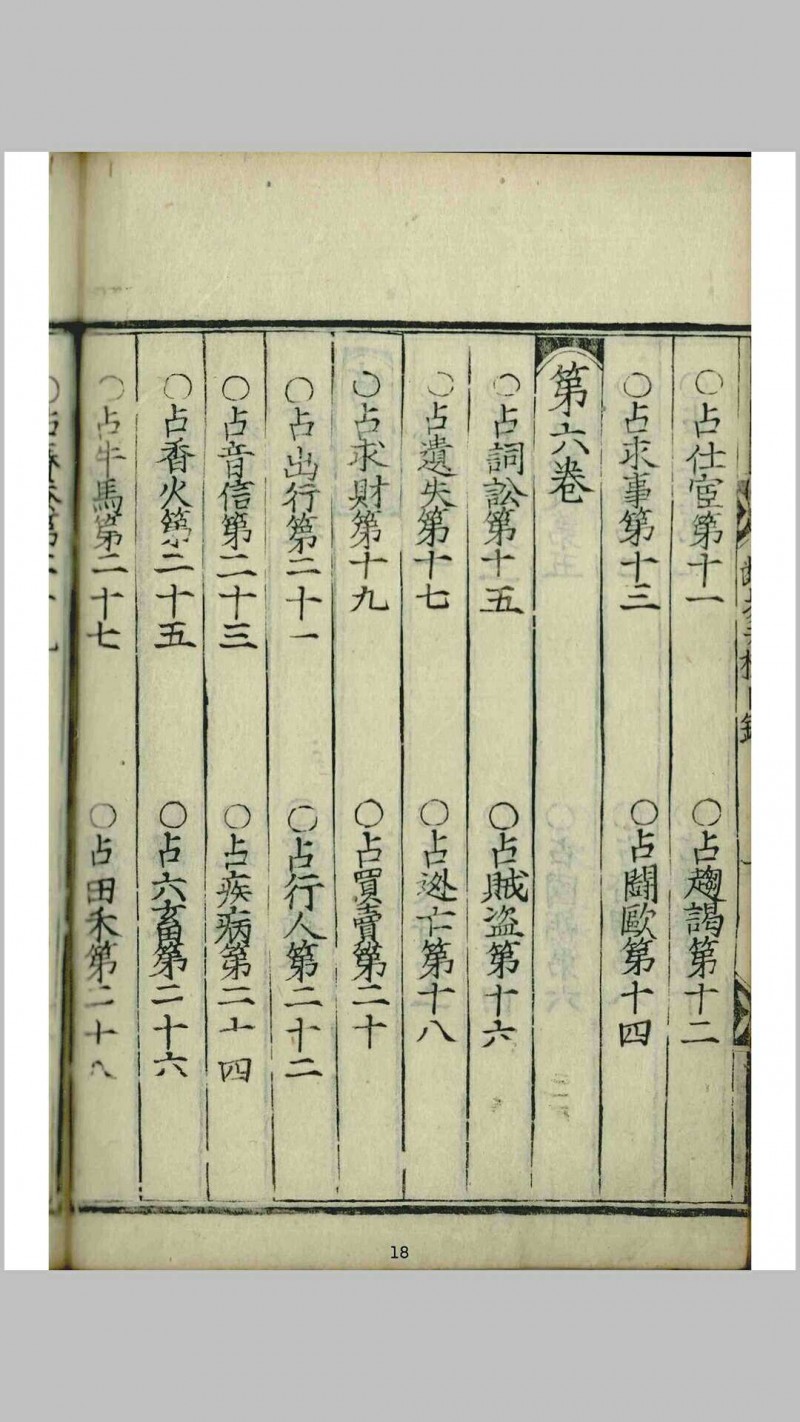 ○占仕宦第十一　○占趨謁第十二
○占求事第十三　○占鬪毆第十四
第六卷
○占詞訟第十五　○占賊盜第十六
○占遺失第十七　○占逃亡第十八
○占求財第十九　○占買賣第二十
○占出行第二十一　○占行人第二十二
○占音信第二十三　○占疾病第二十四
○占香火第二十五　○占六畜第二十六
○占牛馬第二十七　○占田禾第二十八
18